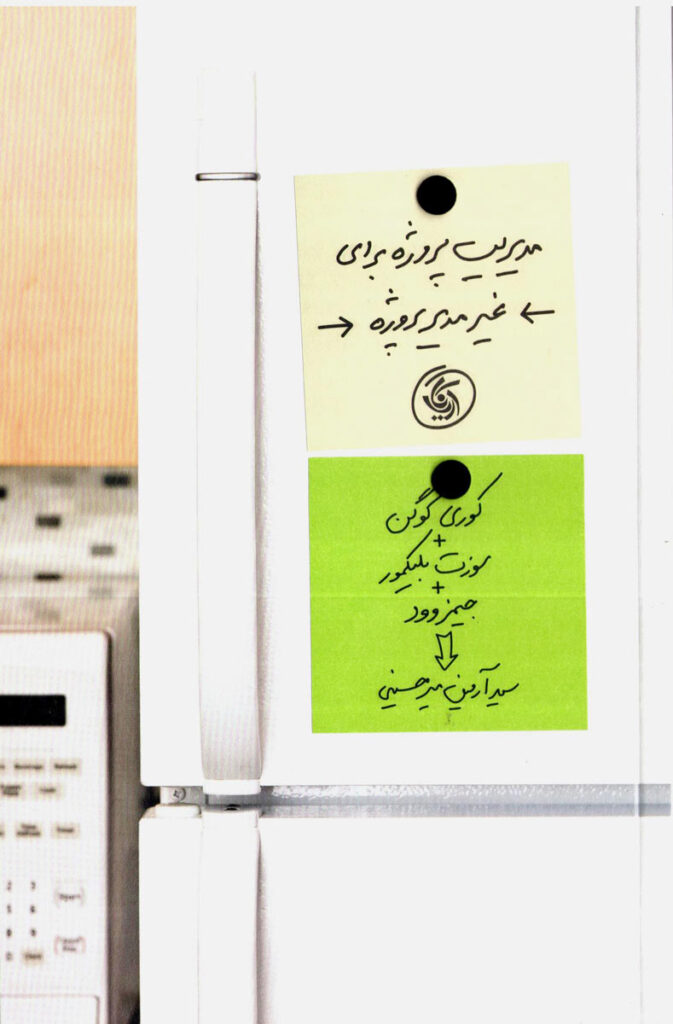 مدیریت پروژه برای
← غیر مدیر پروژه →
آریانا
کوری کوگن
+
سوزت بلیکمور
+
جیمز وود
سید آرمین میرحسینی